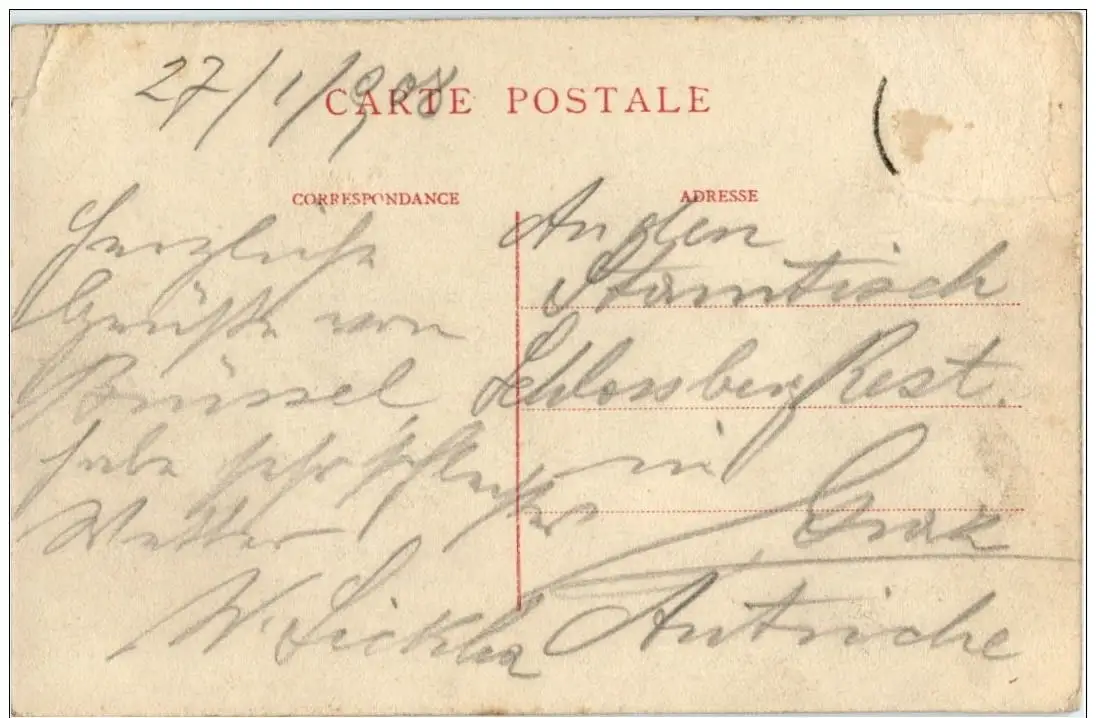 27/1/908
CARTE POSTALE
CORRESPONDANCE
Herzliche
Grüße von
Brüssel
habe sehr schlechtes
Wetter
ADRESSE
An den
Stamtisch
Schlossberg Rest.
in
Graz
Autriche
W.